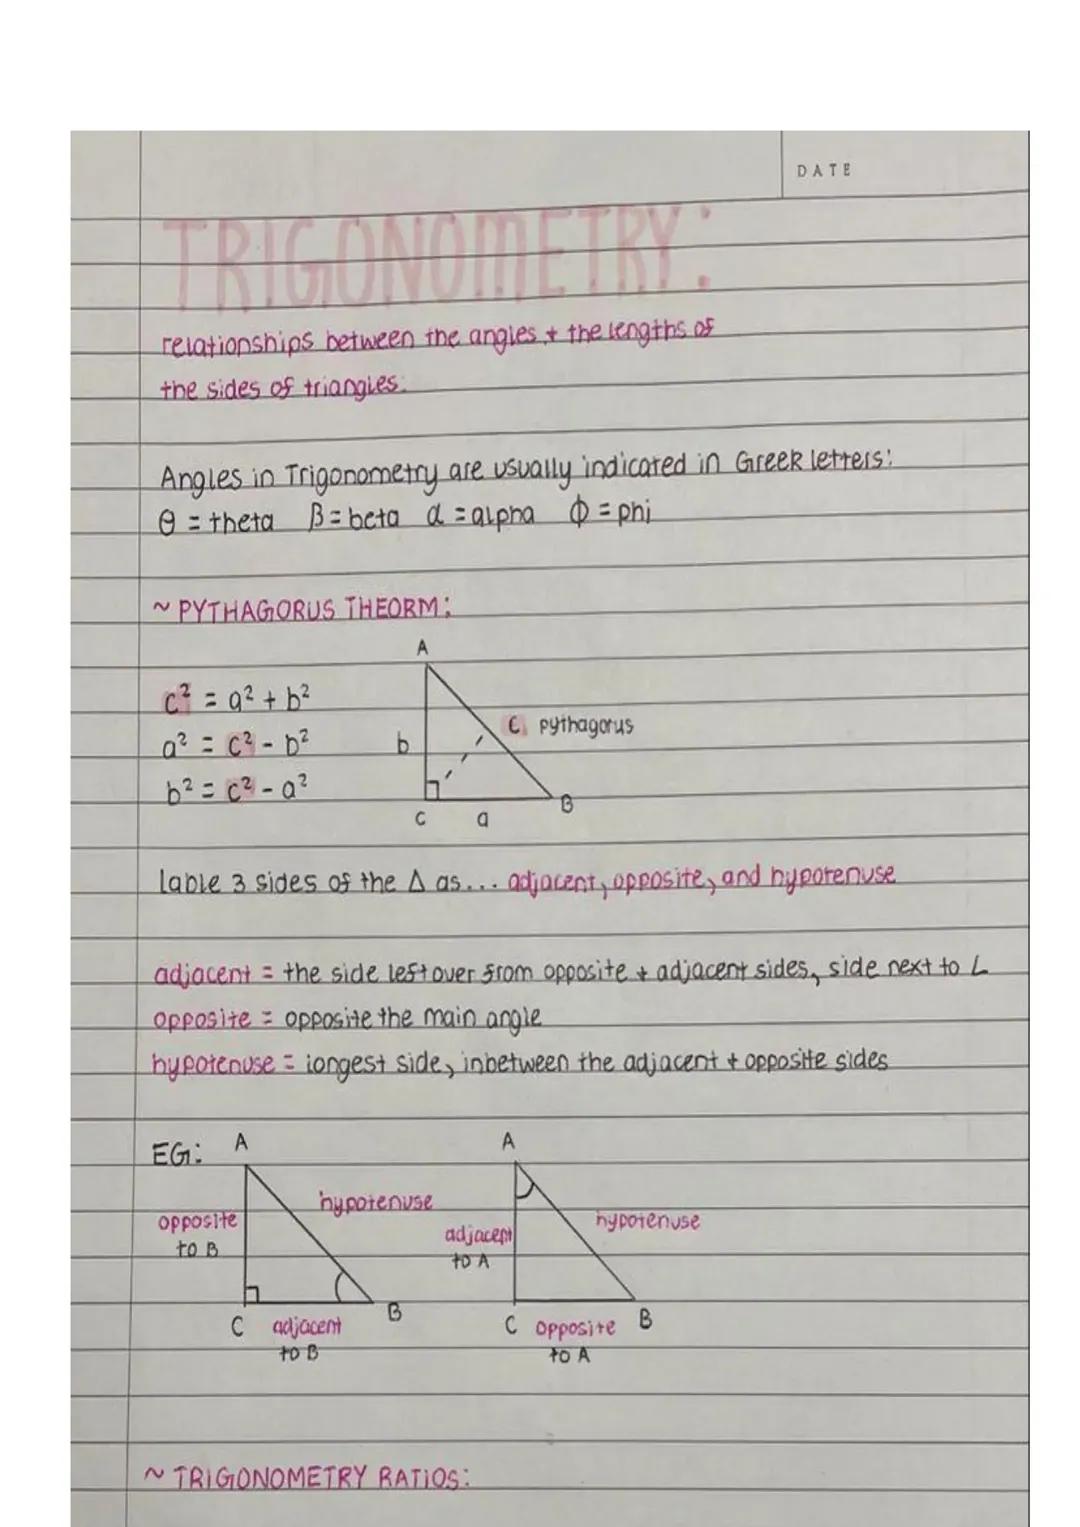 DATE
TRIGONOMETRY:
relationships between the angles + the lengths of
the sides of triangles.
Angles in Trigonometry are usually indicated in Greek letters:
θ = theta β = beta α = alpha Φ = phi
~ PYTHAGORUS THEORM:
A
c² = a² + b²
C pythagorus
a² = c² - b²
b
b² = c² - a²
B
C a
lable 3 sides of the Δ as... adjacent, opposite, and hypotenuse
adjacent = the side left over from opposite + adjacent sides, side next to ∠
opposite = opposite the main angle
hypotenuse = longest side, inbetween the adjacent + opposite sides
EG: A A
opposite hypotenuse adjacent hypotenuse
to B to A
C adjacent B C opposite B
to B to A
~ TRIGONOMETRY RATIOS: